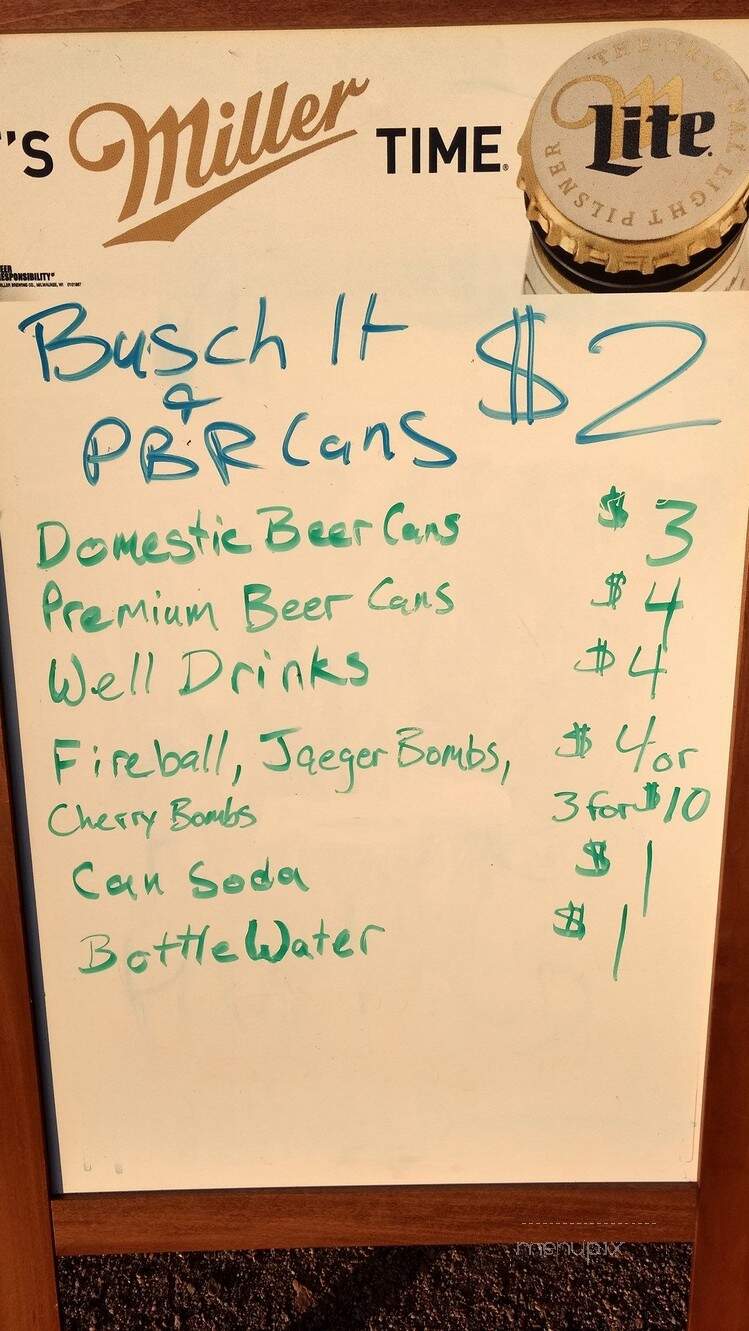 'S Miller TIME.
THE ORIGINAL LIGHT PILSNER
Lite
RESPONSIBILITY
Busch lt $2
&
PBR Cans
Domestic Beer Cans $3
Premium Beer Cans $4
Well Drinks $4
Fireball, Jaeger Bombs, $4 or
Cherry Bombs 3 for $10
Can Soda $1
Bottle Water $1
menupix